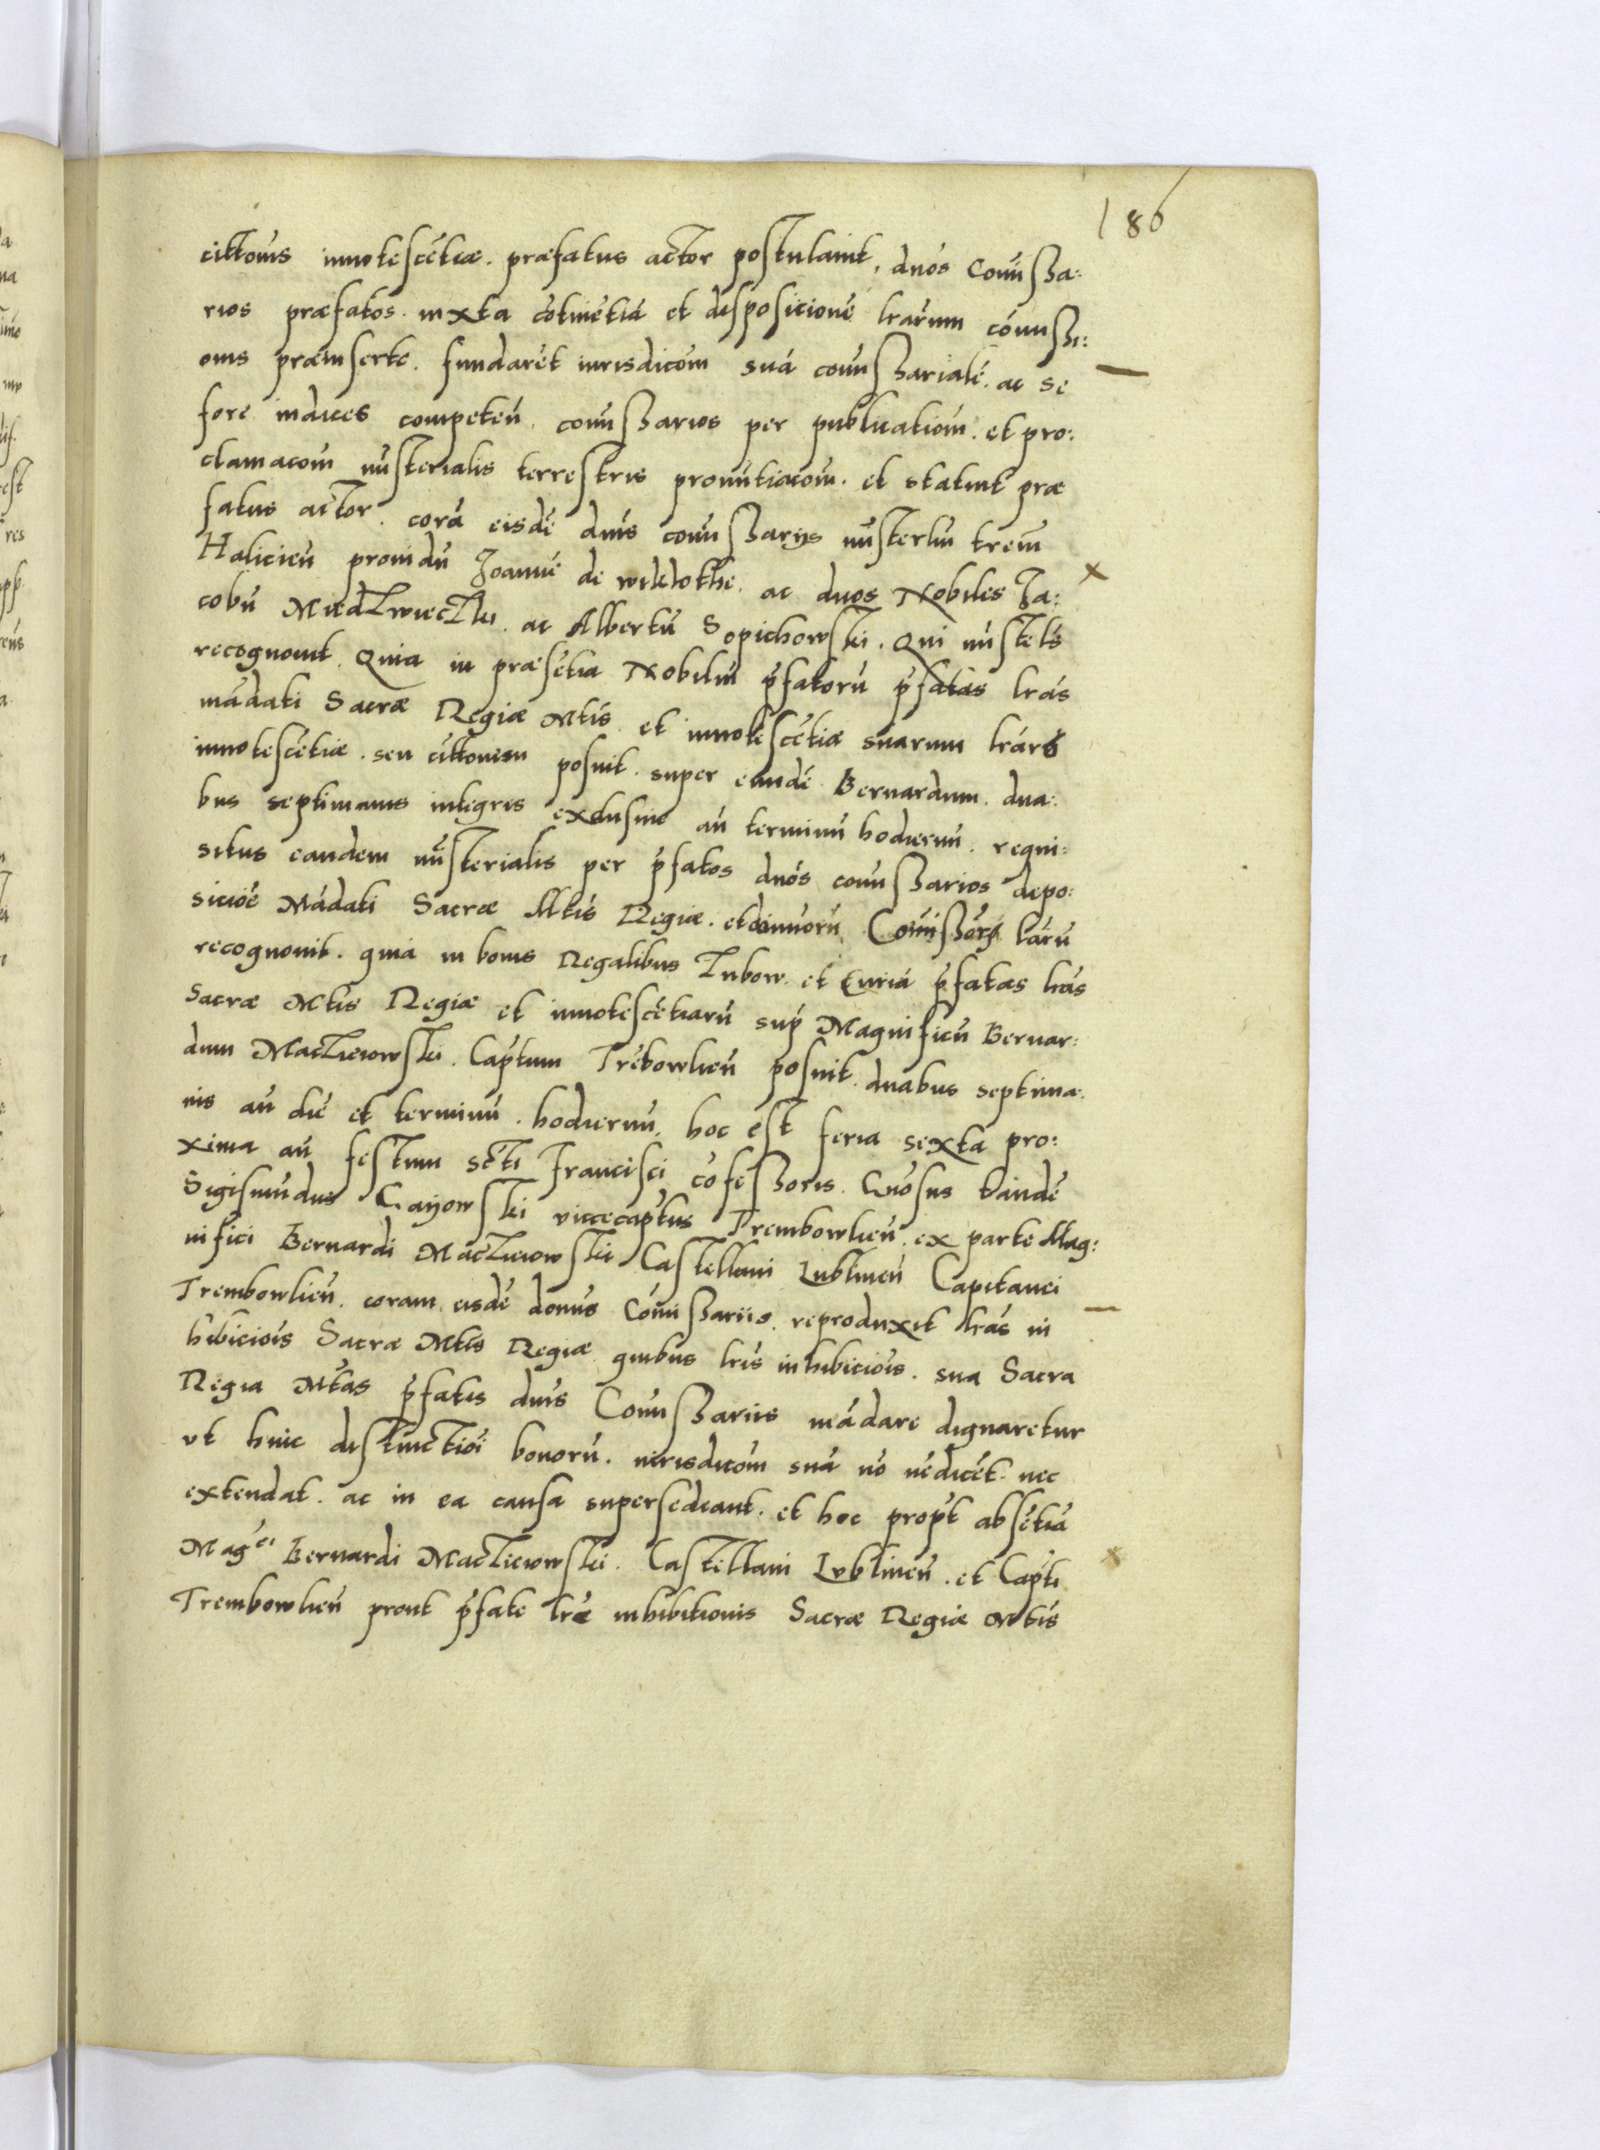 186
cittonis innotescētiæ. præfatus actor postulavit, dnos Comissa:
rios præfatos. iuxta cōtinētiā et despositionē lrarum comissi:
onis præinserte. fundarēt iurisdicōm suā comissarialē. ac se
fore iudices competeñ. comissarios per publicationē. et pro:
clamacōm ministerialis terrestris pronūtiacōm. et statuit præ
fatus actor. corā eisdē dnis comissarijs misterlm trem
Halicieñ providū Joannē de wiktokthe. ac duos Nobiles Ja:
cobū Miedzwieczki. ac Albertū Sopichowski. Qui mistels
recognovit. Quia in præsētia Nobiliū pfatorū pfatas lras
mādati Sacræ Regiæ Mtis et innotescētiæ suarum lrarū
innotescētiæ. seu cittonem posuit. super eundē Bernardum. dua:
bus septimanis integris exclusive añ terminū hodiernū. requi:
situs eandem misterialis per pfatos dnos comissarios depo:
sicioē Mādati Sacræ Mtis Regiæ. et Comissor lrarū
recognovit. quia in bonis Regalibus Zubow. et Curiā pfatas lras
Sacræ Mtis Regiæ et innotescētiarū sup Magnificū Bernar:
dum Macziewski. Captum Trēbowlieñ posuit duabus septima:
nis añ diē et terminū. hodiernū. hoc est feria sexta pro:
xima añ festum scti Francisci cōfessoris. Quosus tandē
Sigismūdus Gayowski vicecaptus Trembowlieñ. ex parte Mag:
nifici Bernardi Macziewski Castellani Lublineñ Capitanei
Trembowlieñ. coram eisdē donis Comissariis. reproduxit lras in
hibiciois Sacræ Mtis Regiæ quibus lris inhibiciois. sua Sacra
Regia Mtas pfatis dnis Comissariis mādare dignaretur
ut huic distinctioi bonorū. iurisdicōm suā nō vēdicēt. nec
extendat. ac in ea causa supersedeant. et hoc propt absētiā
Magci Bernardi Macziewski. Castellani Lublineñ. et Capti
Trembowlieñ prout pfate lræ inhibitionis Sacræ Regiæ Mtis